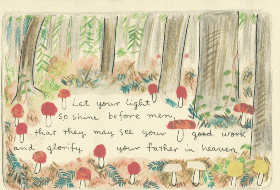 Let your light
so shine before men,
that they may see your good work
and glorify your father in heaven